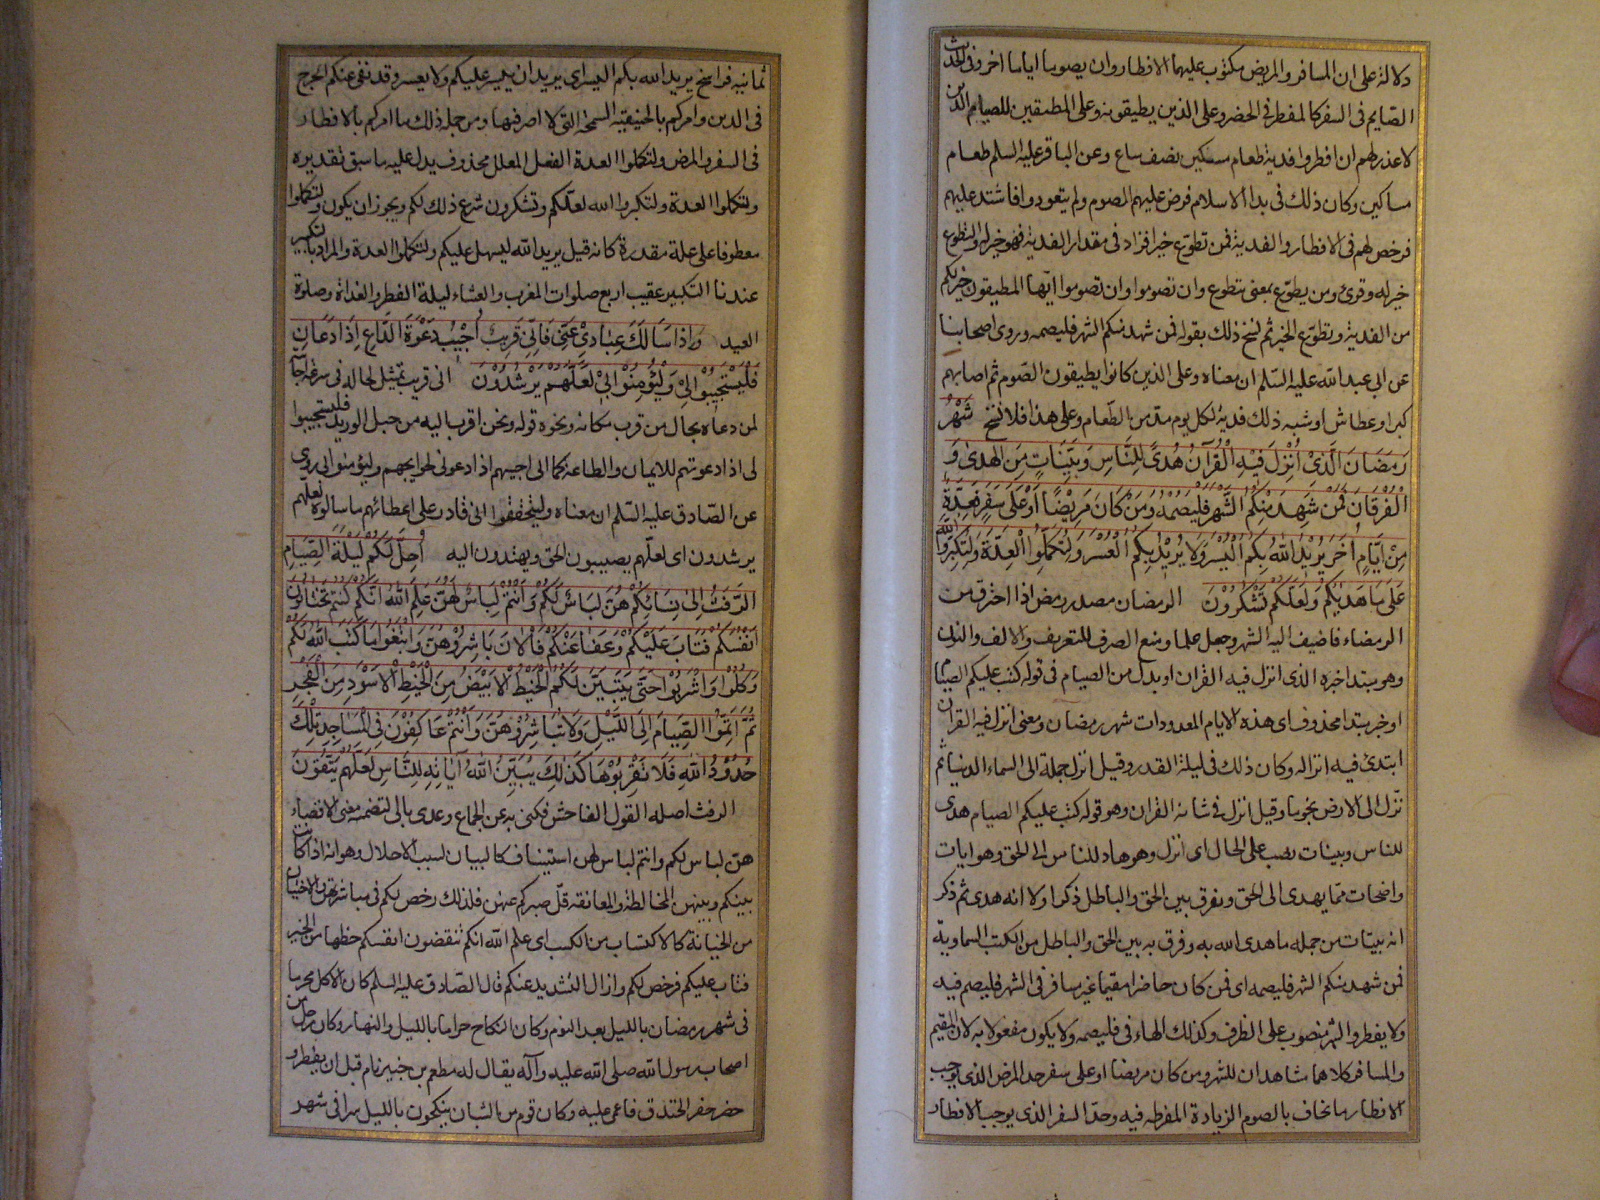 دلالة على ان المسافر والمريض مكتوب عليهما الافطار وان يصوما اياما اخر وفى الحديث
الصايم فى السفر كالمفطر فى الحضر وعلى الذين يطيقونه وعلى المطيقين للصيام الذين
لا عذر لهم ان افطروا فدية طعام مسكين نصف صاع وعن الباقر عليه السلم طعام
مساكين وكان ذلك فى بدا الاسلام فرض عليهم الصوم ولم يتعودوا فاشتد عليهم
فرخص لهم فى الافطار والفدية فمن تطوع خيرا فزاد فى مقدار الفدية فهو خير له والتطوع
خير له وقرئ ومن يطوع بمعنى يتطوع وان تصوموا وان تصوموا ايها المطيقون خير لكم
من الفدية وتطوع الخير ثم نسخ ذلك بقوله فمن شهد منكم الشهر فليصمه وروى اصحابنا
عن ابى عبد الله عليه السلم ان معناه وعلى الذين كانوا يطيقون الصوم ثم اصابهم
كبر او عطاش او شبه ذلك فدية لكل يوم مد من الطعام وعلى هذا فلا نسخ شَهْرُ
رَمَضَانَ الَّذِىْ اُنْزِلَ فِيْهِ الْقُرْآنُ هُدًى لِلنَّاسِ وَبَيِّنَاتٍ مِنَ الْهُدٰى وَ
الْفُرْقَانِ فَمَنْ شَهِدَ مِنْكُمُ الشَّهْرَ فَلْيَصُمْهُ وَمَنْ كَانَ مَرِيْضًا اَوْ عَلٰى سَفَرٍ فَعِدَّةٌ
مِنْ اَيَّامٍ اُخَرَ يُرِيْدُ اللّٰهُ بِكُمُ الْيُسْرَ وَلَا يُرِيْدُ بِكُمُ الْعُسْرَ وَلِتُكْمِلُوا الْعِدَّةَ وَلِتُكَبِّرُوا اللّٰهَ
عَلٰى مَا هَدٰيكُمْ وَلَعَلَّكُمْ تَشْكُرُوْنَ الرمضان مصدر رمض اذا احترق من
الرمضاء فاضيف اليه الشهر وجعل علما ومنع الصرف للتعريف والالف والنون
وهو مبتدا خبره الذى انزل فيه القران او بدل من الصيام فى قوله كتب عليكم الصيام
او خبر مبتدا محذوف اى هذه الايام المعدودات شهر رمضان ومعنى انزل فيه القران
ابتدئ فيه انزاله وكان ذلك فى ليلة القدر وقيل انزل جملة الى السماء الدنيا ثم
نزل الى الارض نجوما وقيل انزل فى شانه القران وهو قوله كتب عليكم الصيام هدى
للناس وبينات نصب على الحال اى انزل وهو هاد للناس الى الحق وهو ايات
واضحات مما يهدى الى الحق ويفرق بين الحق والباطل ذكر اولا انه هدى ثم ذكر
انه بينات من جمله ما هدى الله به وفرق به بين الحق والباطل من الكتب السماوية
فمن شهد منكم الشهر فليصمه اى فمن كان حاضرا مقيما غير مسافر فى الشهر فليصم فيه
ولا يفطر والشهر منصوب على الظرف وكذلك الهاء فى فليصمه ولا يكون مفعولا به لان المقيم
والمسافر كلاهما شاهدان للشهر ومن كان مريضا او على سفر حد المرض الذى يوجب
الافطار ما يخاف بالصوم الزيادة المفرطه فيه وحد السفر الذى يوجب الافطار
ثمانيه فراسخ يريد الله بكم اليسر اى يريد ان ييسر عليكم ولا يعسر وقد نفى عنكم الحرج
فى الدين وامركم بالحنيفيه السمحة التى لا اصر فيها ومن جملة ذلك ما امركم بالافطار
فى السفر والمرض ولتكملوا العدة الفعل المعلل محذوف يدل عليه ما سبق تقديره
ولتكملوا العدة ولتكبروا الله لعلكم وتشكرون شرع ذلك لكم ويجوز ان يكون ولتكملوا
معطوفا على علة مقدرة كانه قيل يريد الله ليسهل عليكم ولتكملوا العدة والمراد بالتكبير
عندنا التكبير عقيب اربع صلوات المغرب والعشاء ليلة الفطر والغداة وصلوة
العيد وَاِذَا سَاَلَكَ عِبَادِىْ عَنِّىْ فَاِنِّىْ قَرِيْبٌ اُجِيْبُ دَعْوَةَ الدَّاعِ اِذَا دَعَانِ
فَلْيَسْتَجِيْبُوْا لِىْ وَلْيُؤْمِنُوْا بِىْ لَعَلَّهُمْ يَرْشُدُوْنَ انى قريب تمثيل لحاله فى سرعة اجابته
لمن دعاه بحال من قرب مكانه ونحوه قوله ونحن اقرب اليه من حبل الوريد فليستجيبوا
لى اذا دعوتهم للايمان والطاعة كما انى اجيبهم اذا دعونى لحوايجهم وليؤمنوا بى روى
عن الصادق عليه السلم ان معناه وليتحققوا انى قادر على اعطائهم ما سالوه لعلهم
يرشدون اى لعلهم يصيبون الحق ويهتدون اليه اُحِلَّ لَكُمْ لَيْلَةَ الصِّيَامِ
الرَّفَثُ اِلٰى نِسَائِكُمْ هُنَّ لِبَاسٌ لَكُمْ وَاَنْتُمْ لِبَاسٌ لَهُنَّ عَلِمَ اللّٰهُ اَنَّكُمْ كُنْتُمْ تَخْتَانُوْنَ
اَنْفُسَكُمْ فَتَابَ عَلَيْكُمْ وَعَفَا عَنْكُمْ فَالْاٰنَ بَاشِرُوْهُنَّ وَابْتَغُوْا مَا كَتَبَ اللّٰهُ لَكُمْ
وَكُلُوْا وَاشْرَبُوْا حَتّٰى يَتَبَيَّنَ لَكُمُ الْخَيْطُ الْاَبْيَضُ مِنَ الْخَيْطِ الْاَسْوَدِ مِنَ الْفَجْرِ
ثُمَّ اَتِمُّوا الصِّيَامَ اِلَى اللَّيْلِ وَلَا تُبَاشِرُوْهُنَّ وَاَنْتُمْ عَاكِفُوْنَ فِى الْمَسَاجِدِ تِلْكَ
حُدُوْدُ اللّٰهِ فَلَا تَقْرَبُوْهَا كَذٰلِكَ يُبَيِّنُ اللّٰهُ اٰيَاتِهٖ لِلنَّاسِ لَعَلَّهُمْ يَتَّقُوْنَ
الرفث اصله القول الفاحش فكنى به عن الجماع وعدى بالى لتضمنه معنى الافضاء
هن لباس لكم وانتم لباس لهن استيناف كالبيان لسبب الاحلال وهو انه اذا كانت
بينكم وبينهن المخالطة والمعانقه قل صبركم عنهن فلذلك رخص لكم فى مباشرتهن والاختيان
من الخيانة كالاكتساب من الكسب اى علم الله انكم تنقصون انفسكم حظها من الخير
فتاب عليكم فرخص لكم وازال التشديد عنكم قال الصادق عليه السلم كان الاكل محرما
فى شهر رمضان بالليل بعد النوم وكان النكاح حراما بالليل والنهار وكان رجل من
اصحاب رسول الله صلى الله عليه وآله يقال له مطعم بن جبير نام قبل ان يفطر و
حضر حفر الخندق فاغمى عليه وكان قوم من الشبان ينكحون بالليل سرا فى شهر